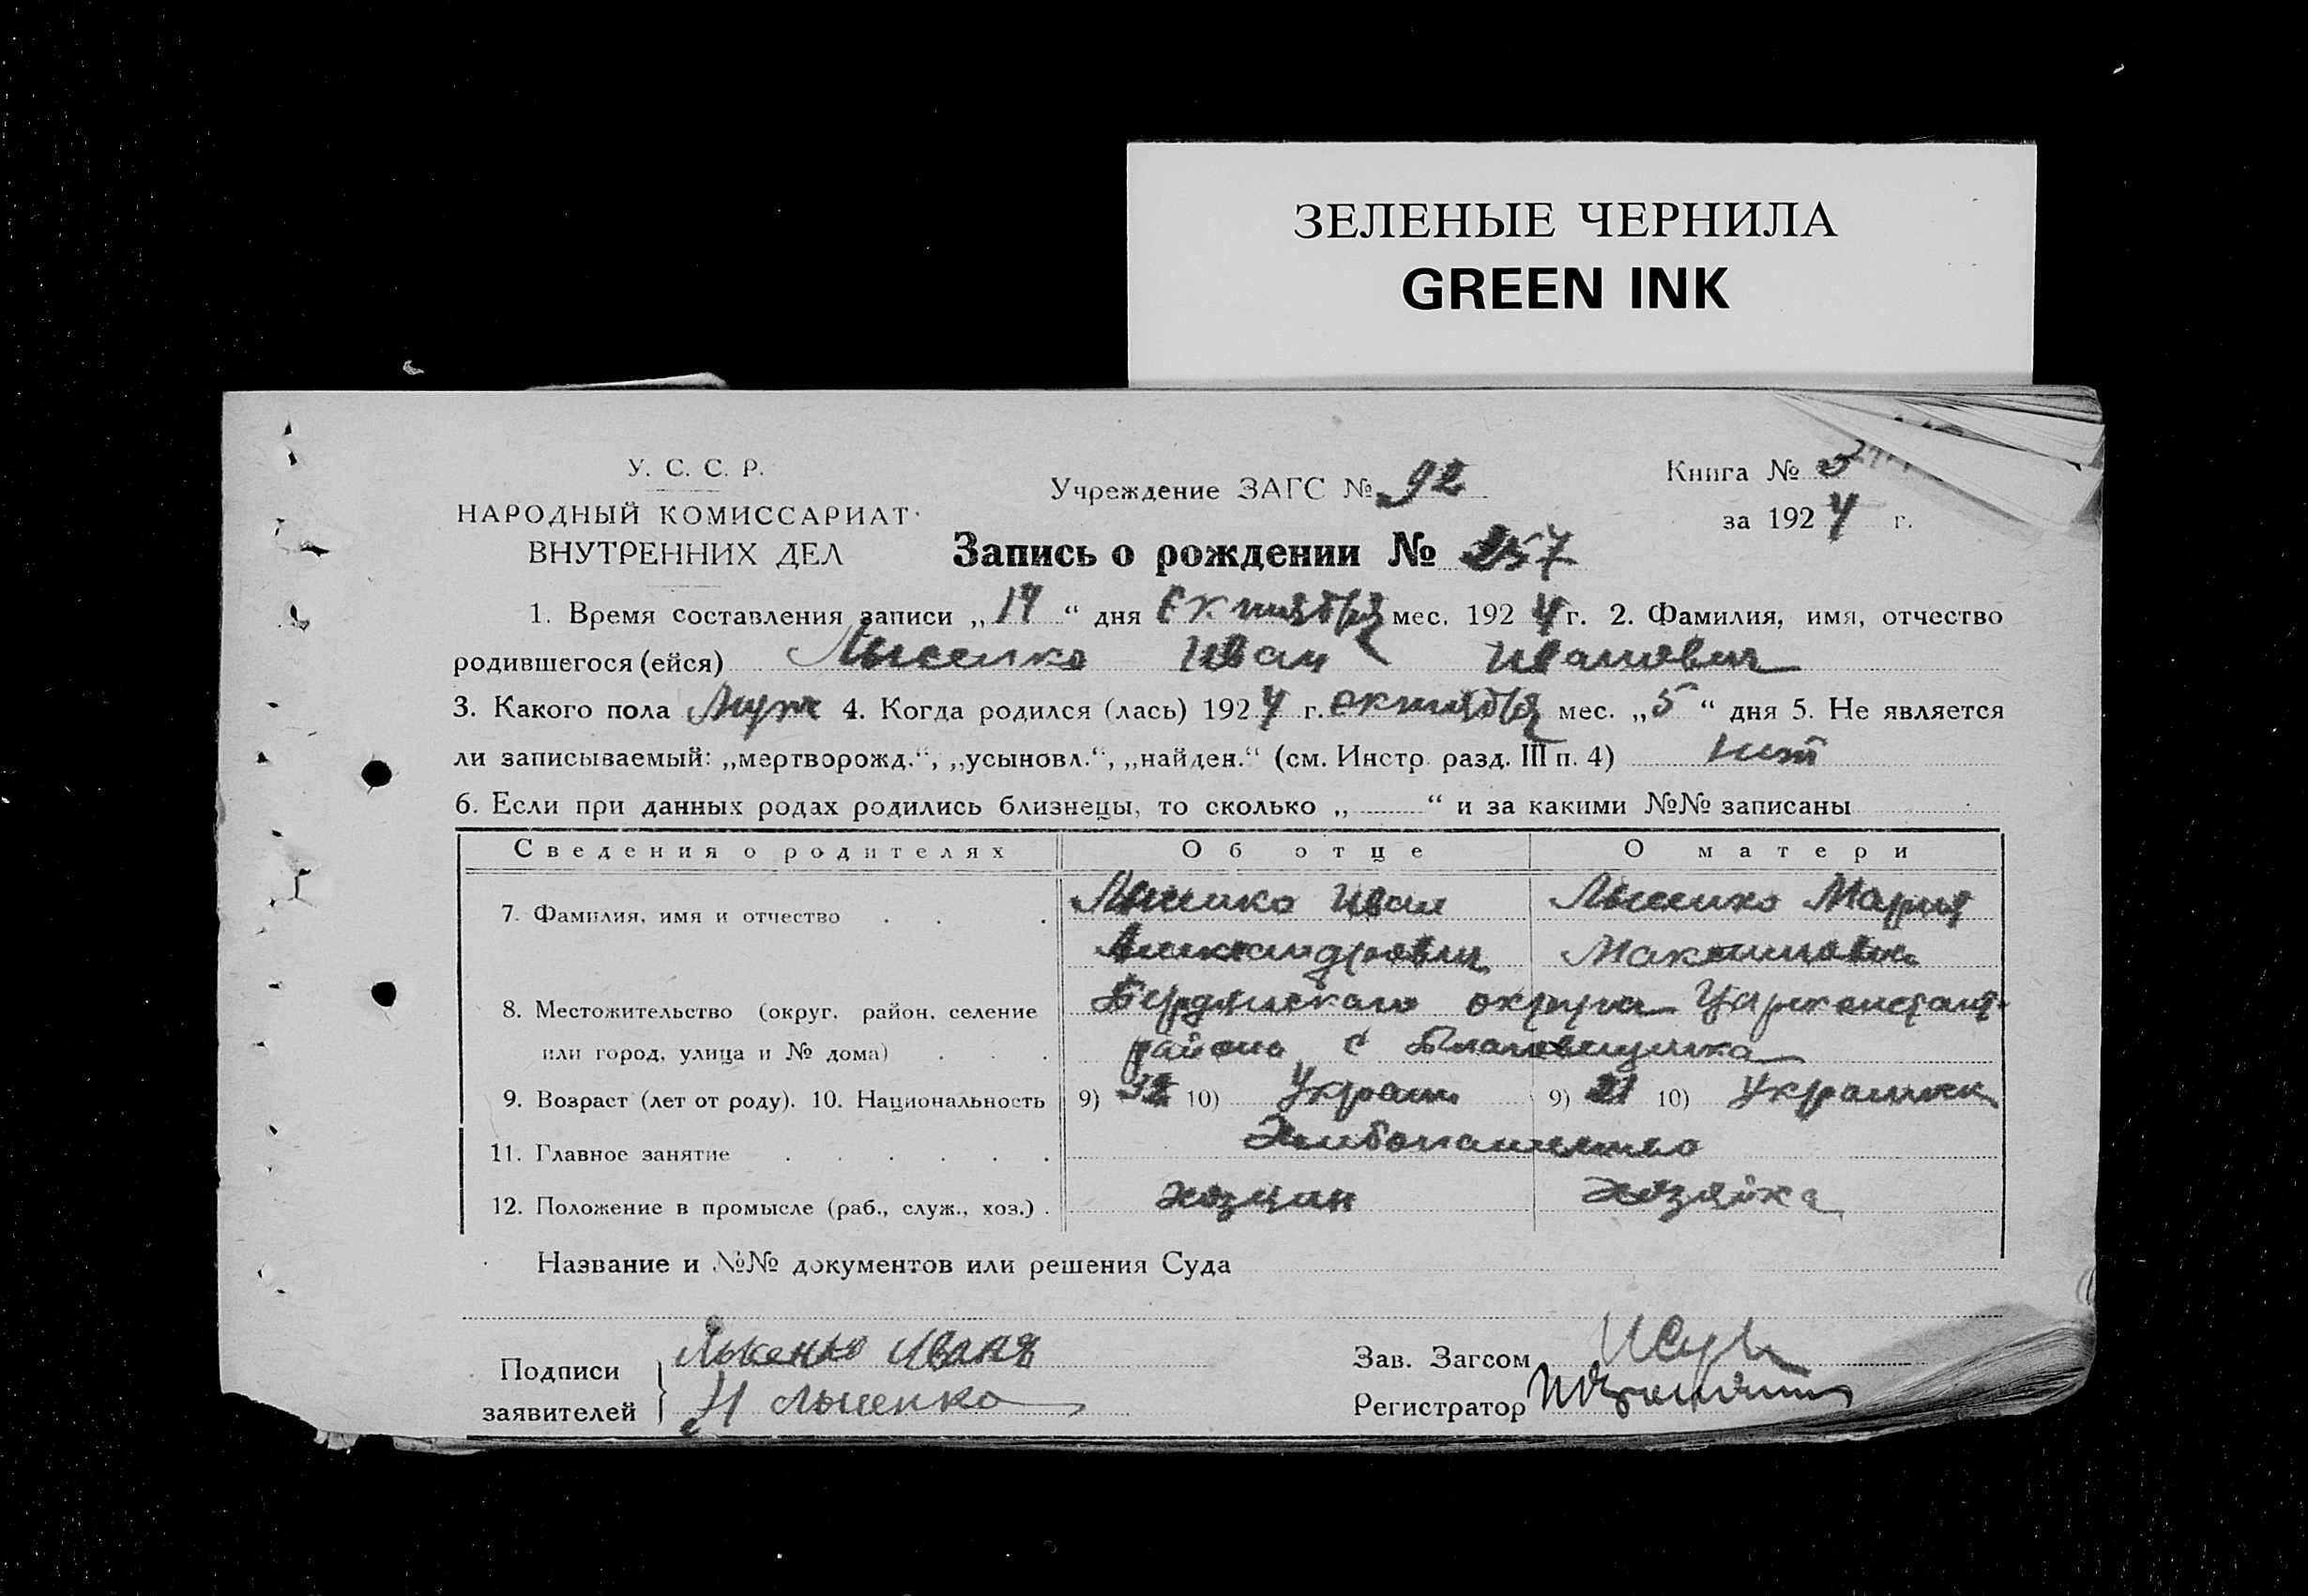 ЗЕЛЕНЫЕ ЧЕРНИЛА
GREEN INK
У. С. С. Р.
НАРОДНЫЙ КОМИССАРИАТ
ВНУТРЕННИХ ДЕЛ
Учреждение ЗАГС № 92
Книга № 5
за 1924 г.
Запись о рождении № 257
1. Время составления записи „ 14 “ дня Октября мес. 1924 г. 2. Фамилия, имя, отчество
родившегося (ейся) Лысенко Иван Иванович
3. Какого пола Муж 4. Когда родился (лась) 1924 г. октября мес. „ 5 “ дня 5. Не является
ли записываемый: „мертворожд.“, „усыновл.“, „найден.“ (см. Инстр. разд. III п. 4) нет
6. Если при данных родах родились близнецы, то сколько „ “ и за какими №№ записаны
Сведения о родителях Об отце О матери
7. Фамилия, имя и отчество Лысенко Иван Лысенко Мария
Александрович Максимовна
8. Местожительство (округ, район, селение Бердянского округа Царконстант.
или город, улица и № дома) района с Благовещенка
9. Возраст (лет от роду). 10. Национальность 9) 32 10) Украин 9) 21 10) Украинка
11. Главное занятие Хлибопашество
12. Положение в промысле (раб., служ., хоз.) хозяин хозяйка
Название и №№ документов или решения Суда
Подписи заявителей Лысенко Иван
И Лысенко
Зав. Загсом
Регистратор